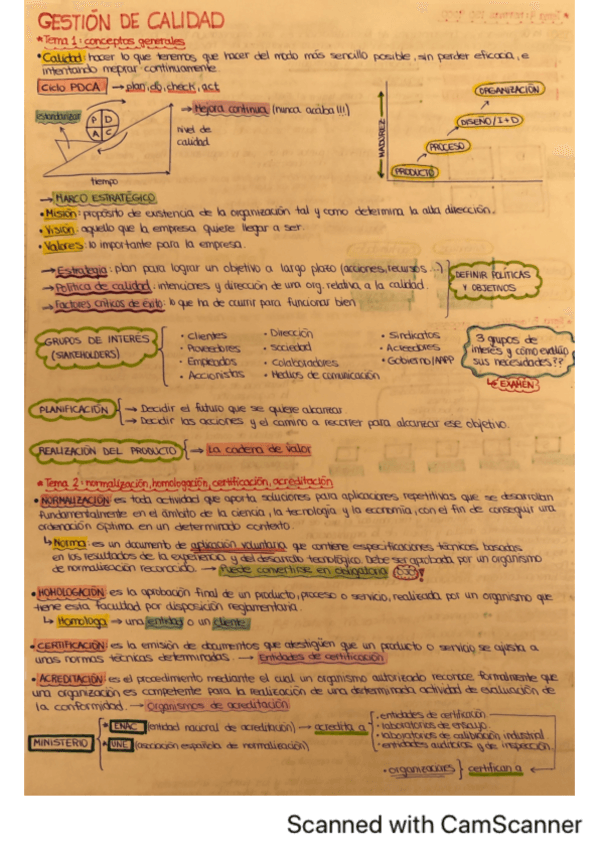 GESTIÓN DE CALIDAD
* Tema 1: conceptos generales
• Calidad: hacer lo que tenemos que hacer del modo más sencillo posible, sin perder eficacia, e
intentando mejorar continuamente.
Ciclo PDCA → plan, do, check, act
estandarizar
P D
A C
→ Mejora continua (nunca acaba!!!)
nivel de
calidad
tiempo
MADUREZ
ORGANIZACIÓN
DISEÑO/I+D
PROCESO
PRODUCTO
→ MARCO ESTRATÉGICO
• Misión: propósito de existencia de la organización tal y como determina la alta dirección.
• Visión: aquello que la empresa quiere llegar a ser.
• Valores: lo importante para la empresa.
→ Estrategia: plan para lograr un objetivo a largo plazo (acciones, recursos...)
→ Política de calidad: intenciones y dirección de una org. relativa a la calidad.
→ Factores críticos de éxito: lo que ha de ocurrir para funcionar bien
DEFINIR POLÍTICAS
Y OBJETIVOS
GRUPOS DE INTERÉS
(STAKEHOLDERS)
• Clientes
• Proveedores
• Empleados
• Accionistas
• Dirección
• Sociedad
• Colaboradores
• Medios de comunicación
• Sindicatos
• Acreedores
• Gobierno/AAPP
3 grupos de
interés y cómo evalúo
sus necesidades??
↳ EXAMEN
PLANIFICACIÓN
→ Decidir el futuro que se quiere alcanzar
→ Decidir las acciones y el camino a recorrer para alcanzar ese objetivo.
REALIZACIÓN DEL PRODUCTO → La cadena de valor
* Tema 2: normalización, homologación, certificación, acreditación
• NORMALIZACIÓN es toda actividad que aporta soluciones para aplicaciones repetitivas que se desarrollan
fundamentalmente en el ámbito de la ciencia, la tecnología y la economía, con el fin de conseguir una
ordenación óptima en un determinado contexto.
↳ Norma: es un documento de aplicación voluntaria que contiene especificaciones técnicas basadas
en los resultados de la experiencia y del desarrollo tecnológico. Debe ser aprobada por un organismo
de normalización reconocido. → Puede convertirse en obligatoria
• HOMOLOGACIÓN es la aprobación final de un producto, proceso o servicio, realizada por un organismo que
tiene esta facultad por disposición reglamentaria.
↳ Homologa → una entidad o un cliente
• CERTIFICACIÓN es la emisión de documentos que atestigüen que un producto o servicio se ajusta a
unas normas técnicas determinadas. → Entidades de certificación
• ACREDITACIÓN es el procedimiento mediante el cual un organismo autorizado reconoce formalmente que
una organización es competente para la realización de una determinada actividad de evaluación de
la conformidad. → Organismos de acreditación
MINISTERIO
• ENAC (entidad nacional de acreditación) → acredita a
• UNE (asociación española de normalización)
• entidades de certificación
• laboratorios de ensayo
• laboratorios de calibración industrial
• entidades auditoras y de inspección
• organizaciones } certifican a
Scanned with CamScanner